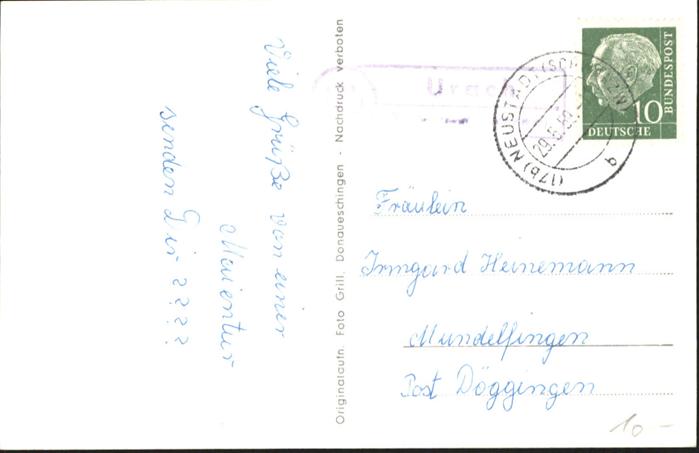 Viele Grüße von einer
Maientur
senden Dir ????
Originalaufn. Foto Grill, Donaueschingen - Nachdruck verboten
Urach
(17b) NEUSTADT (SCHWARZW)
29.5.60
b
10
DEUTSCHE
BUNDESPOST
Fräulein
Irmgard Heinemann
Mundelfingen
Post Döggingen
10 -